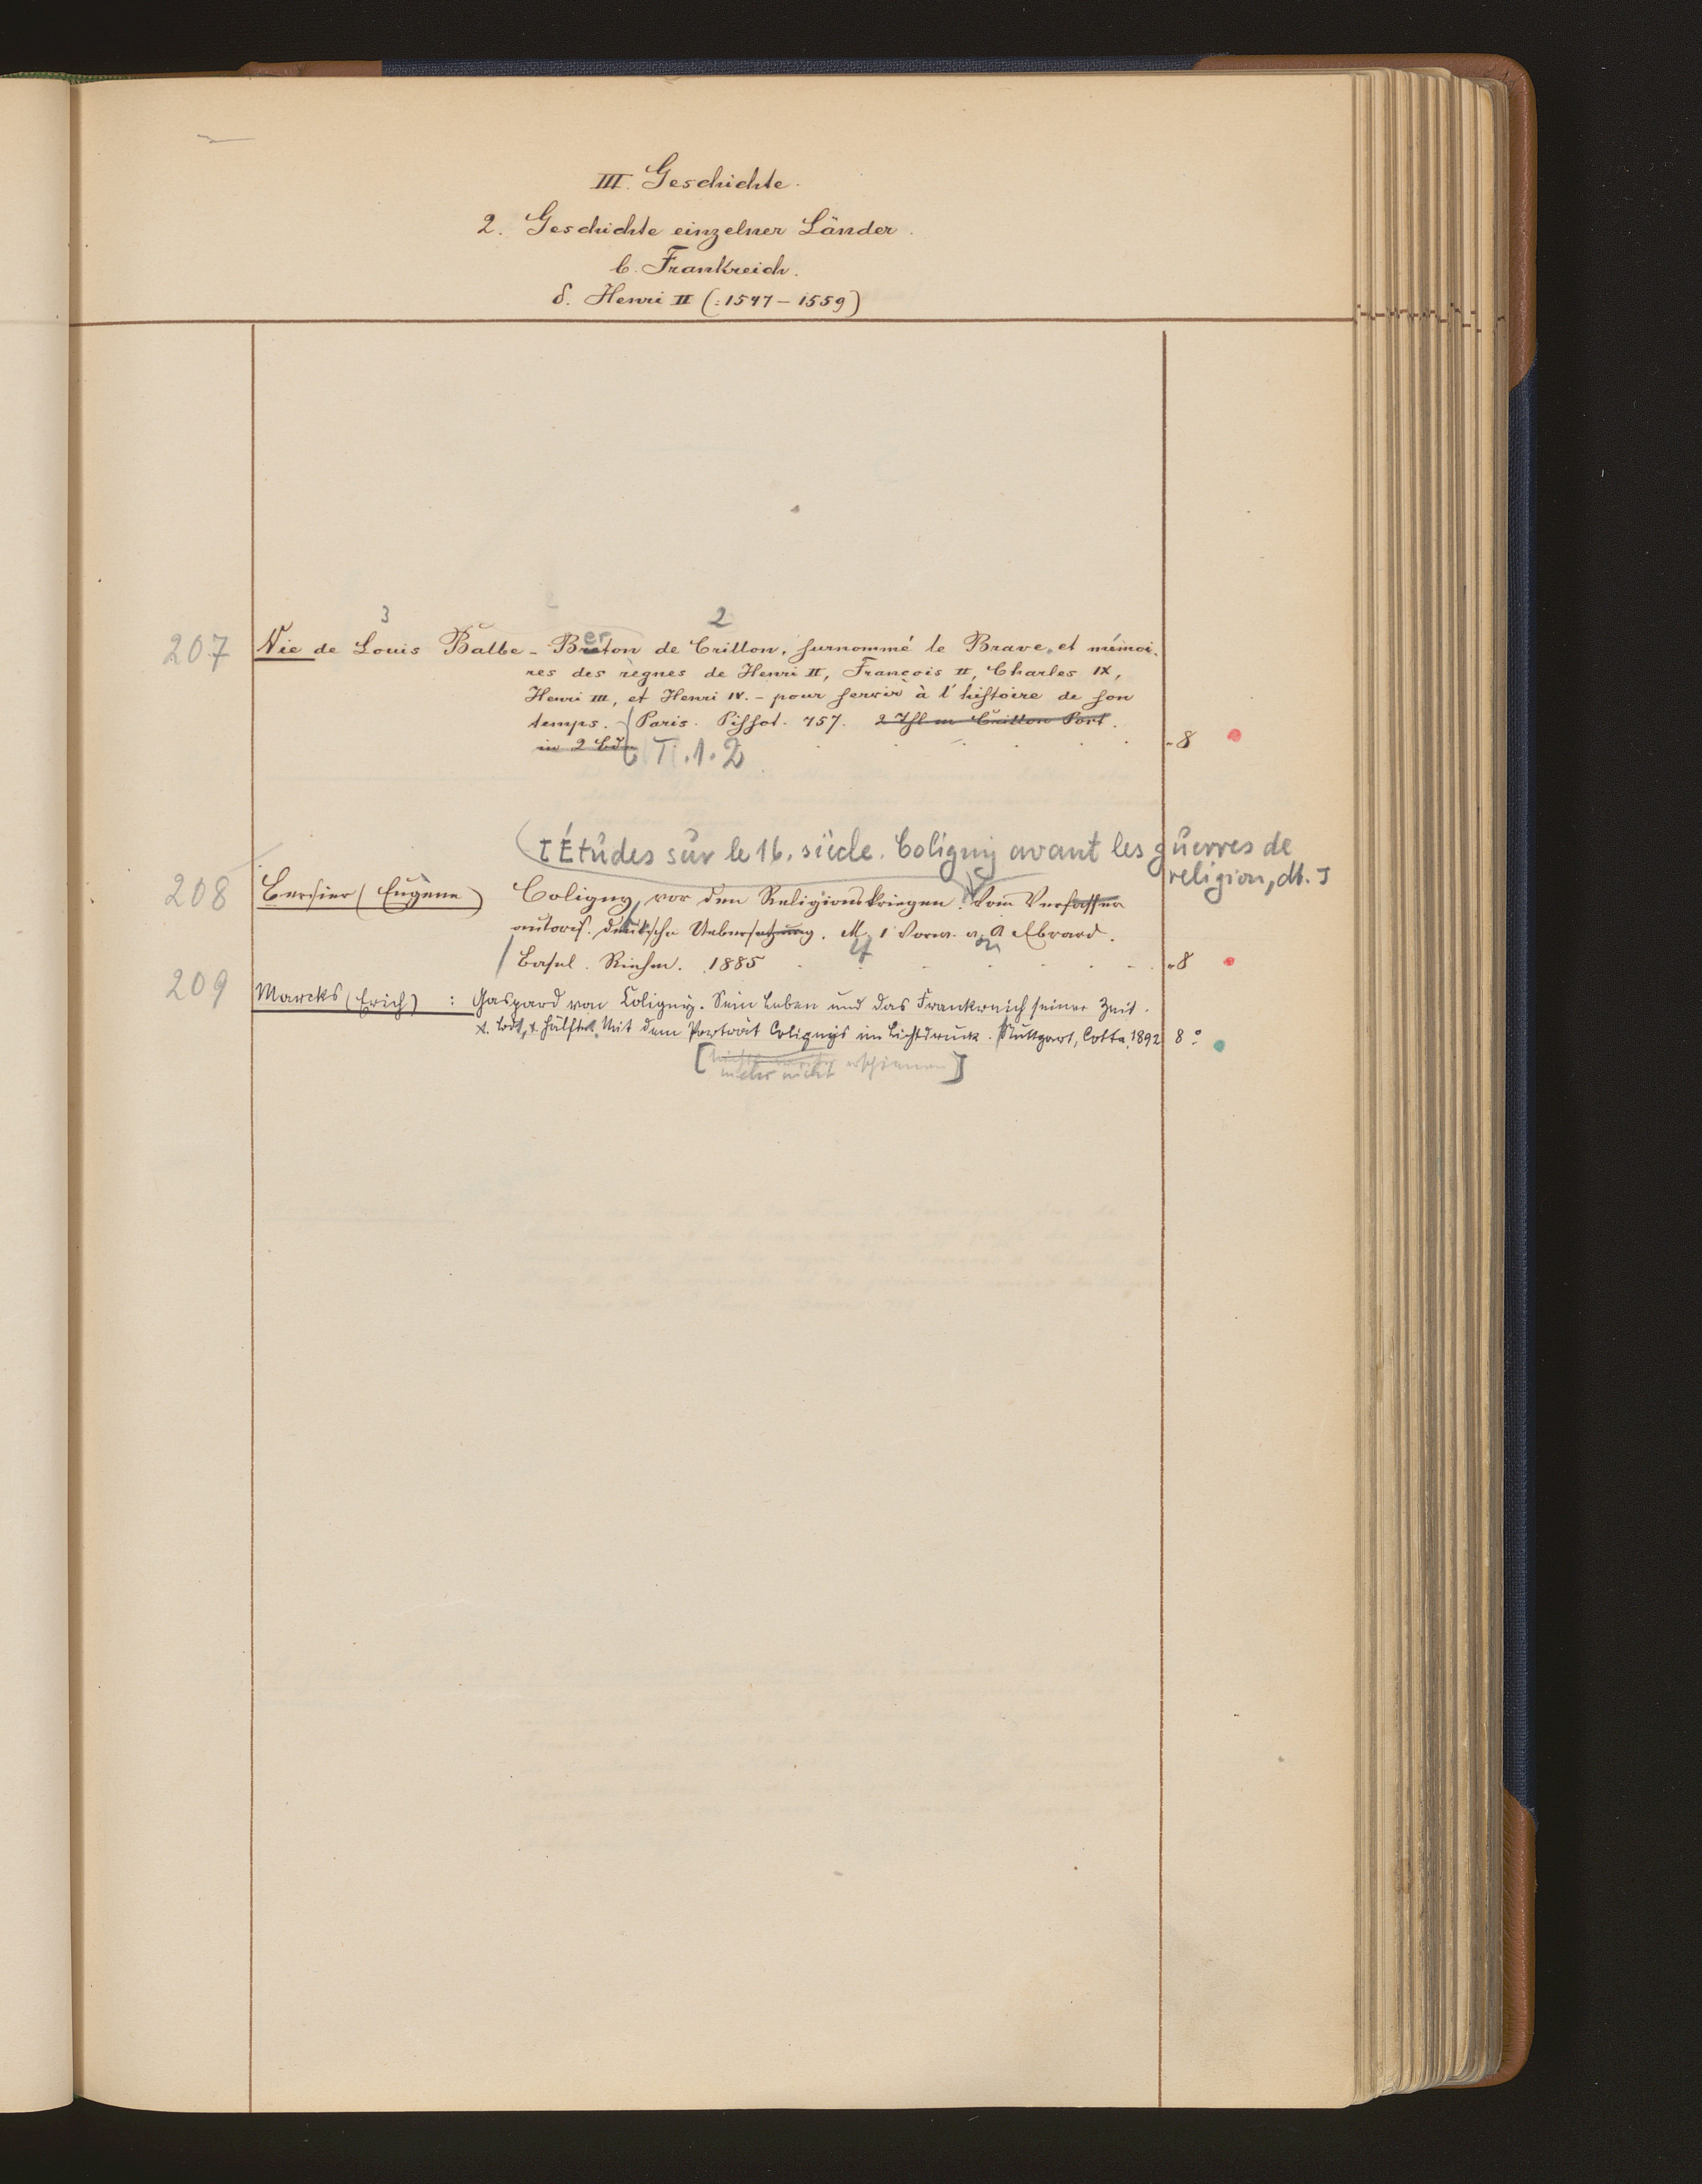 III. Geschichte.
2. Geschichte einzelner Länder.
b. Frankreich.
δ. Henri II (:1547–1559)
3 2
207 Vie de Louis Balbe-Breton de Crillon, surnommé le Brave, et mémoi-
er
res des règnes de Henri II, François II, Charles IX,
Henri III, et Henri IV. – pour servir à l'histoire de son
temps. Paris. Pissot. 757. 2 Thl in
in 2 Bd. T. 1. 2 -8
[Études sur le 16. siècle. Coligny avant les guerres de
religion, dt.]
208 Bersier (Eugène) Coligny, vor den Religionskriegen. Vom Verfasser
autoris. deutsche Uebersetzung. M. 1 Vorw. v. A Ebrard.
Basel. Riehm. 1885 -8
209 Marcks (Erich) : Gaspard von Coligny. Sein Leben und das Frankreich seiner Zeit.
1. Bd, 1. Hälfte. Mit dem Porträt Colignys im Lichtdruck. Stuttgart, Cotta, 1892 8°
[mehr nicht erschienen]